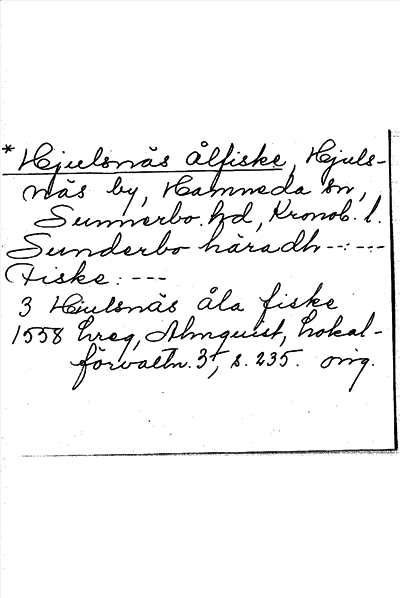 * Hjulsnäs ålfiske, Hjuls-
näs by, Hamneda sn,
Sunnerbo hd, Kronob. l.
Sunderbo häradh --:---
Fiske: ---
3 Hiulsnäs åla fiske
1558 hreg, Almquist, Lokal-
förvaltn. 3, s. 235. orig.